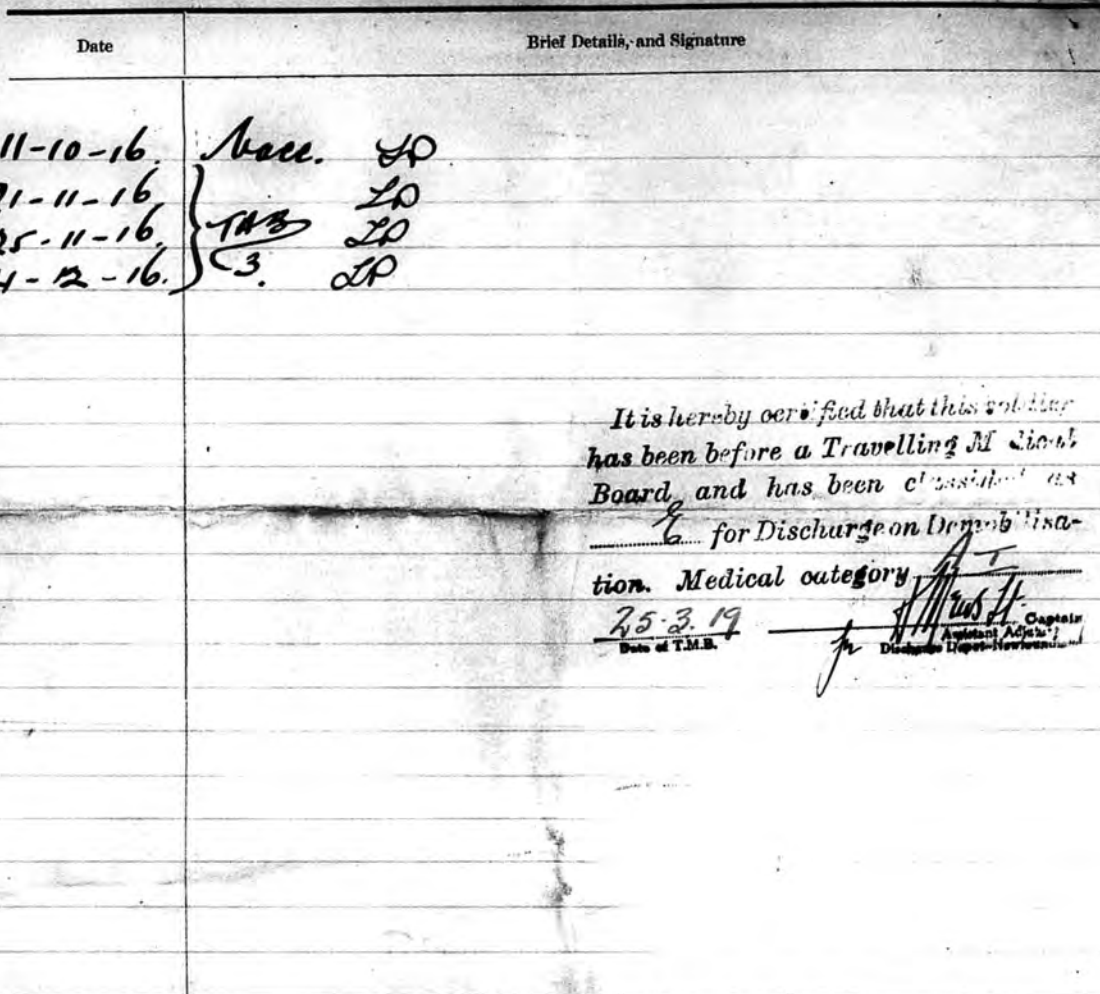 Date Brief Details, and Signature
11-10-16. Vacc. LP
21-11-16 LP
25-11-16. TAB LP
4-12-16. 3. LP
It is hereby certified that this soldier
has been before a Travelling Medical
Board, and has been classified as
E for Discharge on Demobilisa-
tion. Medical category A I
25.3.19 Lt. Captain
Date of T.M.B. for Assistant Adjutant
Discharge Depot-Newfoundland